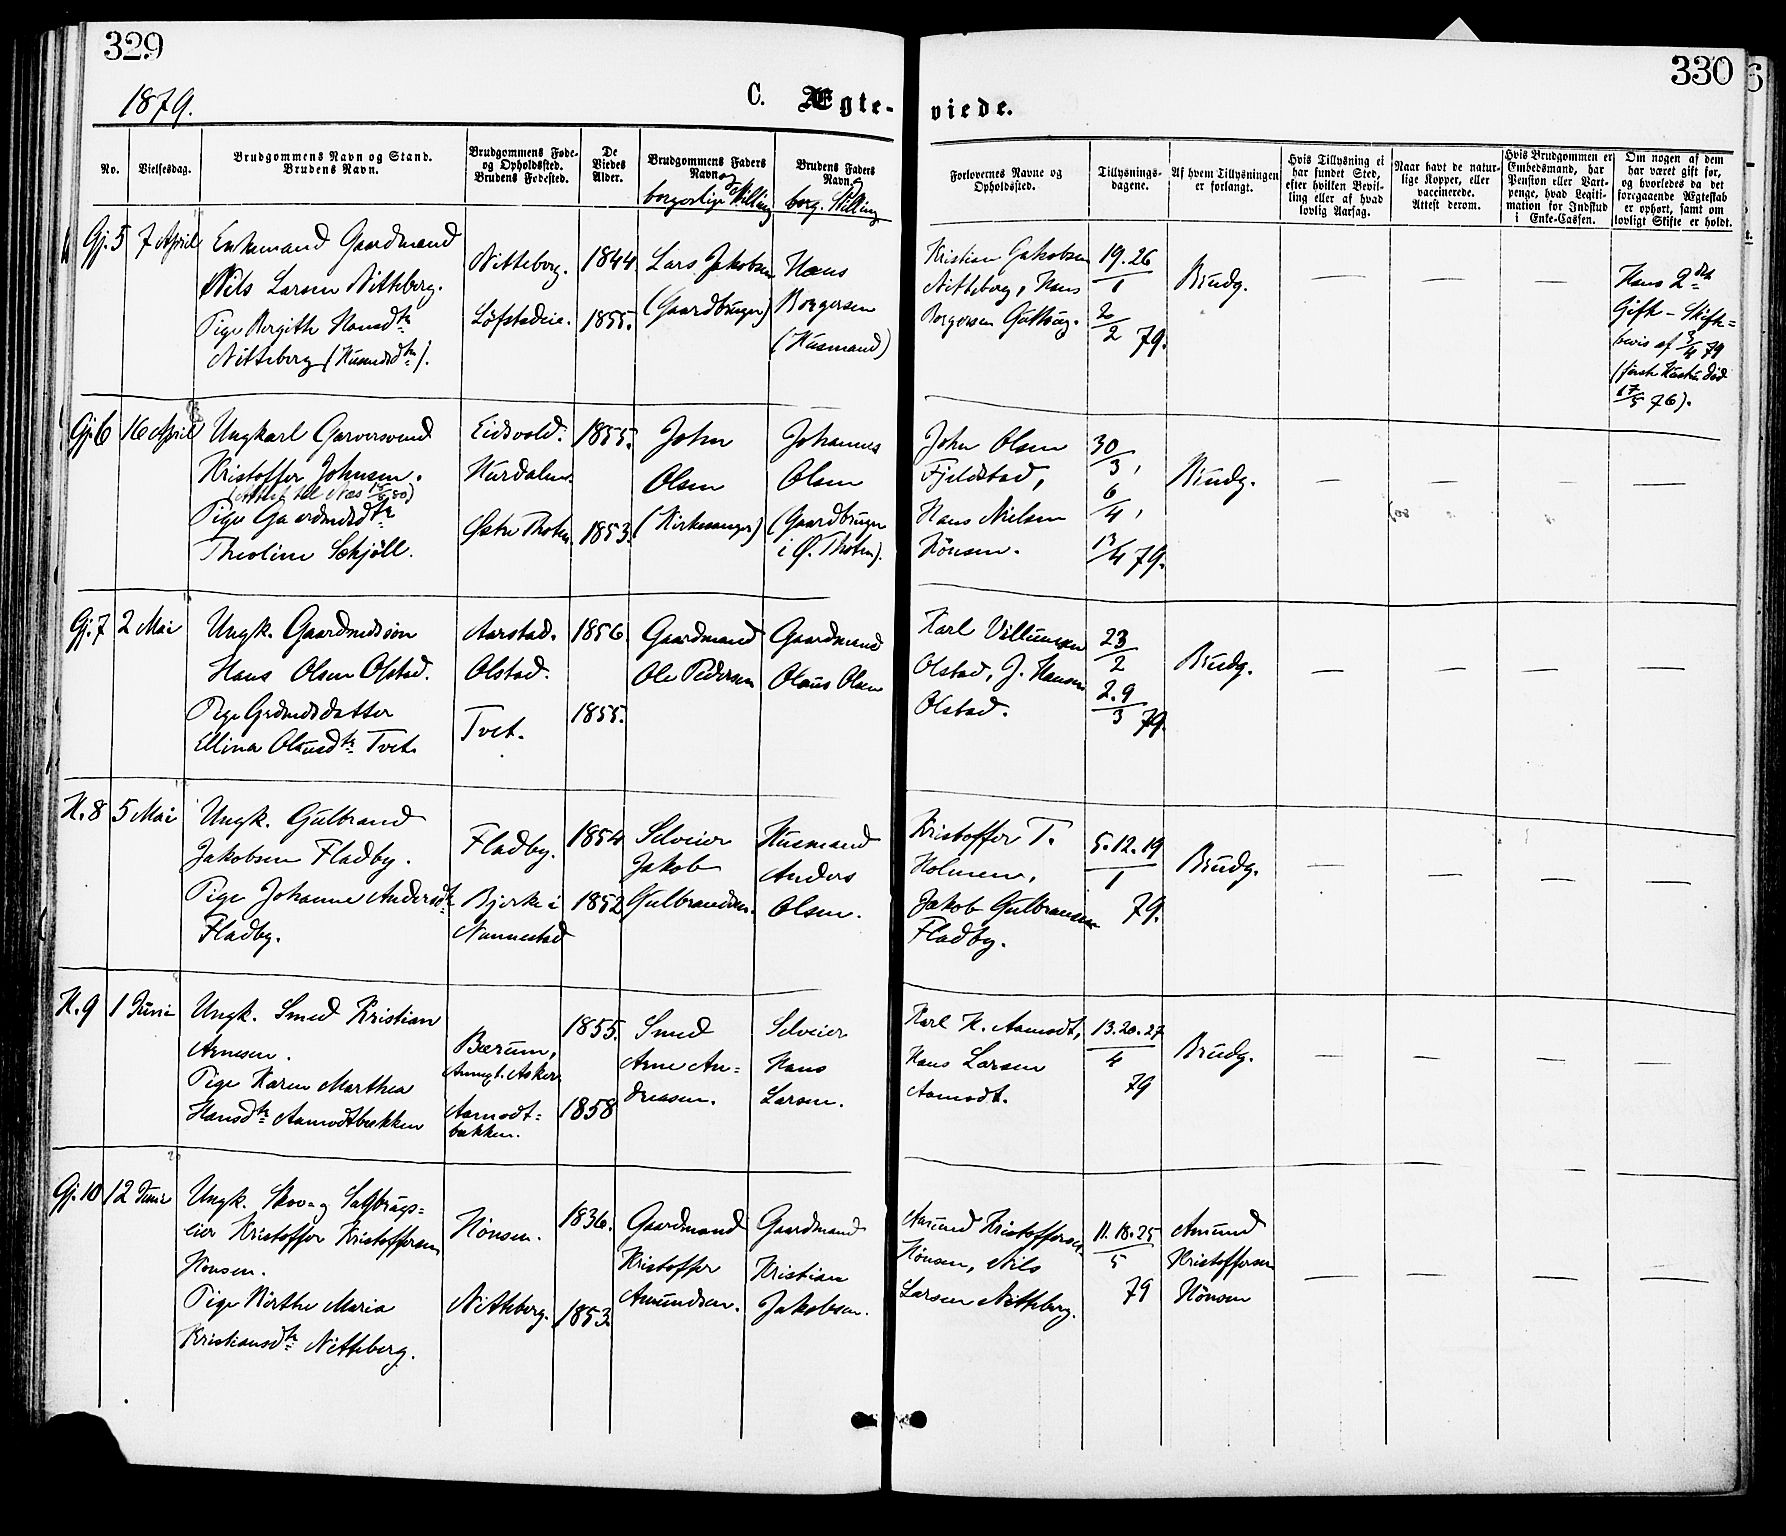 329
330
1879.
C. Ægte-
viede.
No.
Vielsesdag.
Brudgommens Navn og Stand.
Brudens Navn.
Brudgommens Føde-
og Opholdssted.
Brudens Fødested.
De
Viedes
Alder.
Brudgommens Faders
Navn og
borgerlige Stilling
Brudens Faders
Navn og
borg. Stilling
Forlovernes Navne og
Opholdssted.
Tillysnings-
dagene.
Af hvem Tillysningen
er forlangt.
Hvis Tillysning ei
har fundet Sted,
efter hvilken Bevil-
ling eller af hvad
lovlig Aarsag.
Naar havt de natur-
lige Kopper, eller
vaccinerede.
Attest derom.
Hvis Brudgommen er
Embedsmand, har
Pension eller Vart-
penge, hvad Legiti-
mation for Indskud
i Enke-Cassen.
Om nogen af dem
har været gift før,
og hvorledes da det
foregaaende Ægteskab
er ophørt, samt om
lovligt Skifte er holdt.
Gj. 5
7 April
Enkemand Gaardmand
Nils Larsen Nitteberg.
Pige Bergithe Hansdtr
Nitteberg (Husmdsdtr).
Nitteberg.
Løfstadeie.
1844
1855.
Lars Jakobsen
(Gaardbruger)
Hans
Borgersen
(Husmand)
Kristian Jakobsen
Nitteberg, Hans
Borgersen
19. 26
1
2
2 79.
Brudg.
Hans 2det
Gifte - Skifte-
bevis af 3/4 79
(første Hustru død
17/5 76).
Gj. 6
16 April
Ungkarl Garversvend
Kristoffer Johnsen.
Pige Gaardmdsdtr
Theoline Sekjøll.
Eidsvold.
Hurdalen.
Østre Thoten
1855.
1853.
John
Olsen
(Kirkesanger)
Johannes
Olsen
(Gaardbruger
i Ø. Thoten).
John Olsen
Fjeldstad,
Hans Nielsen
Hønsen.
30
3,
6
4,
13
4 79.
Brudg.
Gj. 7
2 Mai
Ungk. Gaardmdssøn
Hans Olsen Olstad.
Pige Grdmdsdatter
Elina Olausdtr Tvet.
Aarstad.
Olstad.
Tvet.
1856.
1855.
Gaardmand
Ole Pedersen
Gaardmand
Olaus Olsen
Karl Villumsen
Olstad, J. Hansen
Olstad.
23
2
2. 9
3 79.
Brudg.
H. 8
5 Mai
Ungk. Gulbrand
Jakobsen Fladby.
Pige Johanne Andersdtr
Fladby.
Fladby.
Bjerke i
Nannestad
1854
1852
Selveier
Jakob
Gulbrandsen.
Husmand
Anders
Olsen.
Kristoffer T.
Holmen,
Jakob Gulbrandsen
Fladby.
5. 12. 19
1
79.
Brudg.
H. 9
1 Juni
Ungk. Smed Kristian
Arnesen.
Pige Karen Marthea
Hansdtr Aamodtbækken
Bærum,
Annegt. Asker
Aamodt-
bækken.
1855.
1858
Smed
Arne An-
dreasen.
Selveier
Hans
Larsen.
Karl H. Aamodt,
Hans Larsen
Aamodt.
13. 20. 27
4
79
Brudg.
Gj. 10
12 Juni
Ungk. Skov- og Sagbrugs-
eier Kristoffer Kristoffersen
Hønsen.
Pige Birthe Maria
Kristiansdtr Nitteberg.
Hønsen.
Nitteberg.
1836.
1853.
Gaardmand
Kristoffer
Amundsen.
Gaardmand
Kristian
Jakobsen.
Amund Kristoffersen
Hønsen, Nils
Larsen Nitteberg.
11. 18. 25
5
79
Amund
Kristoffersen
Hønsen